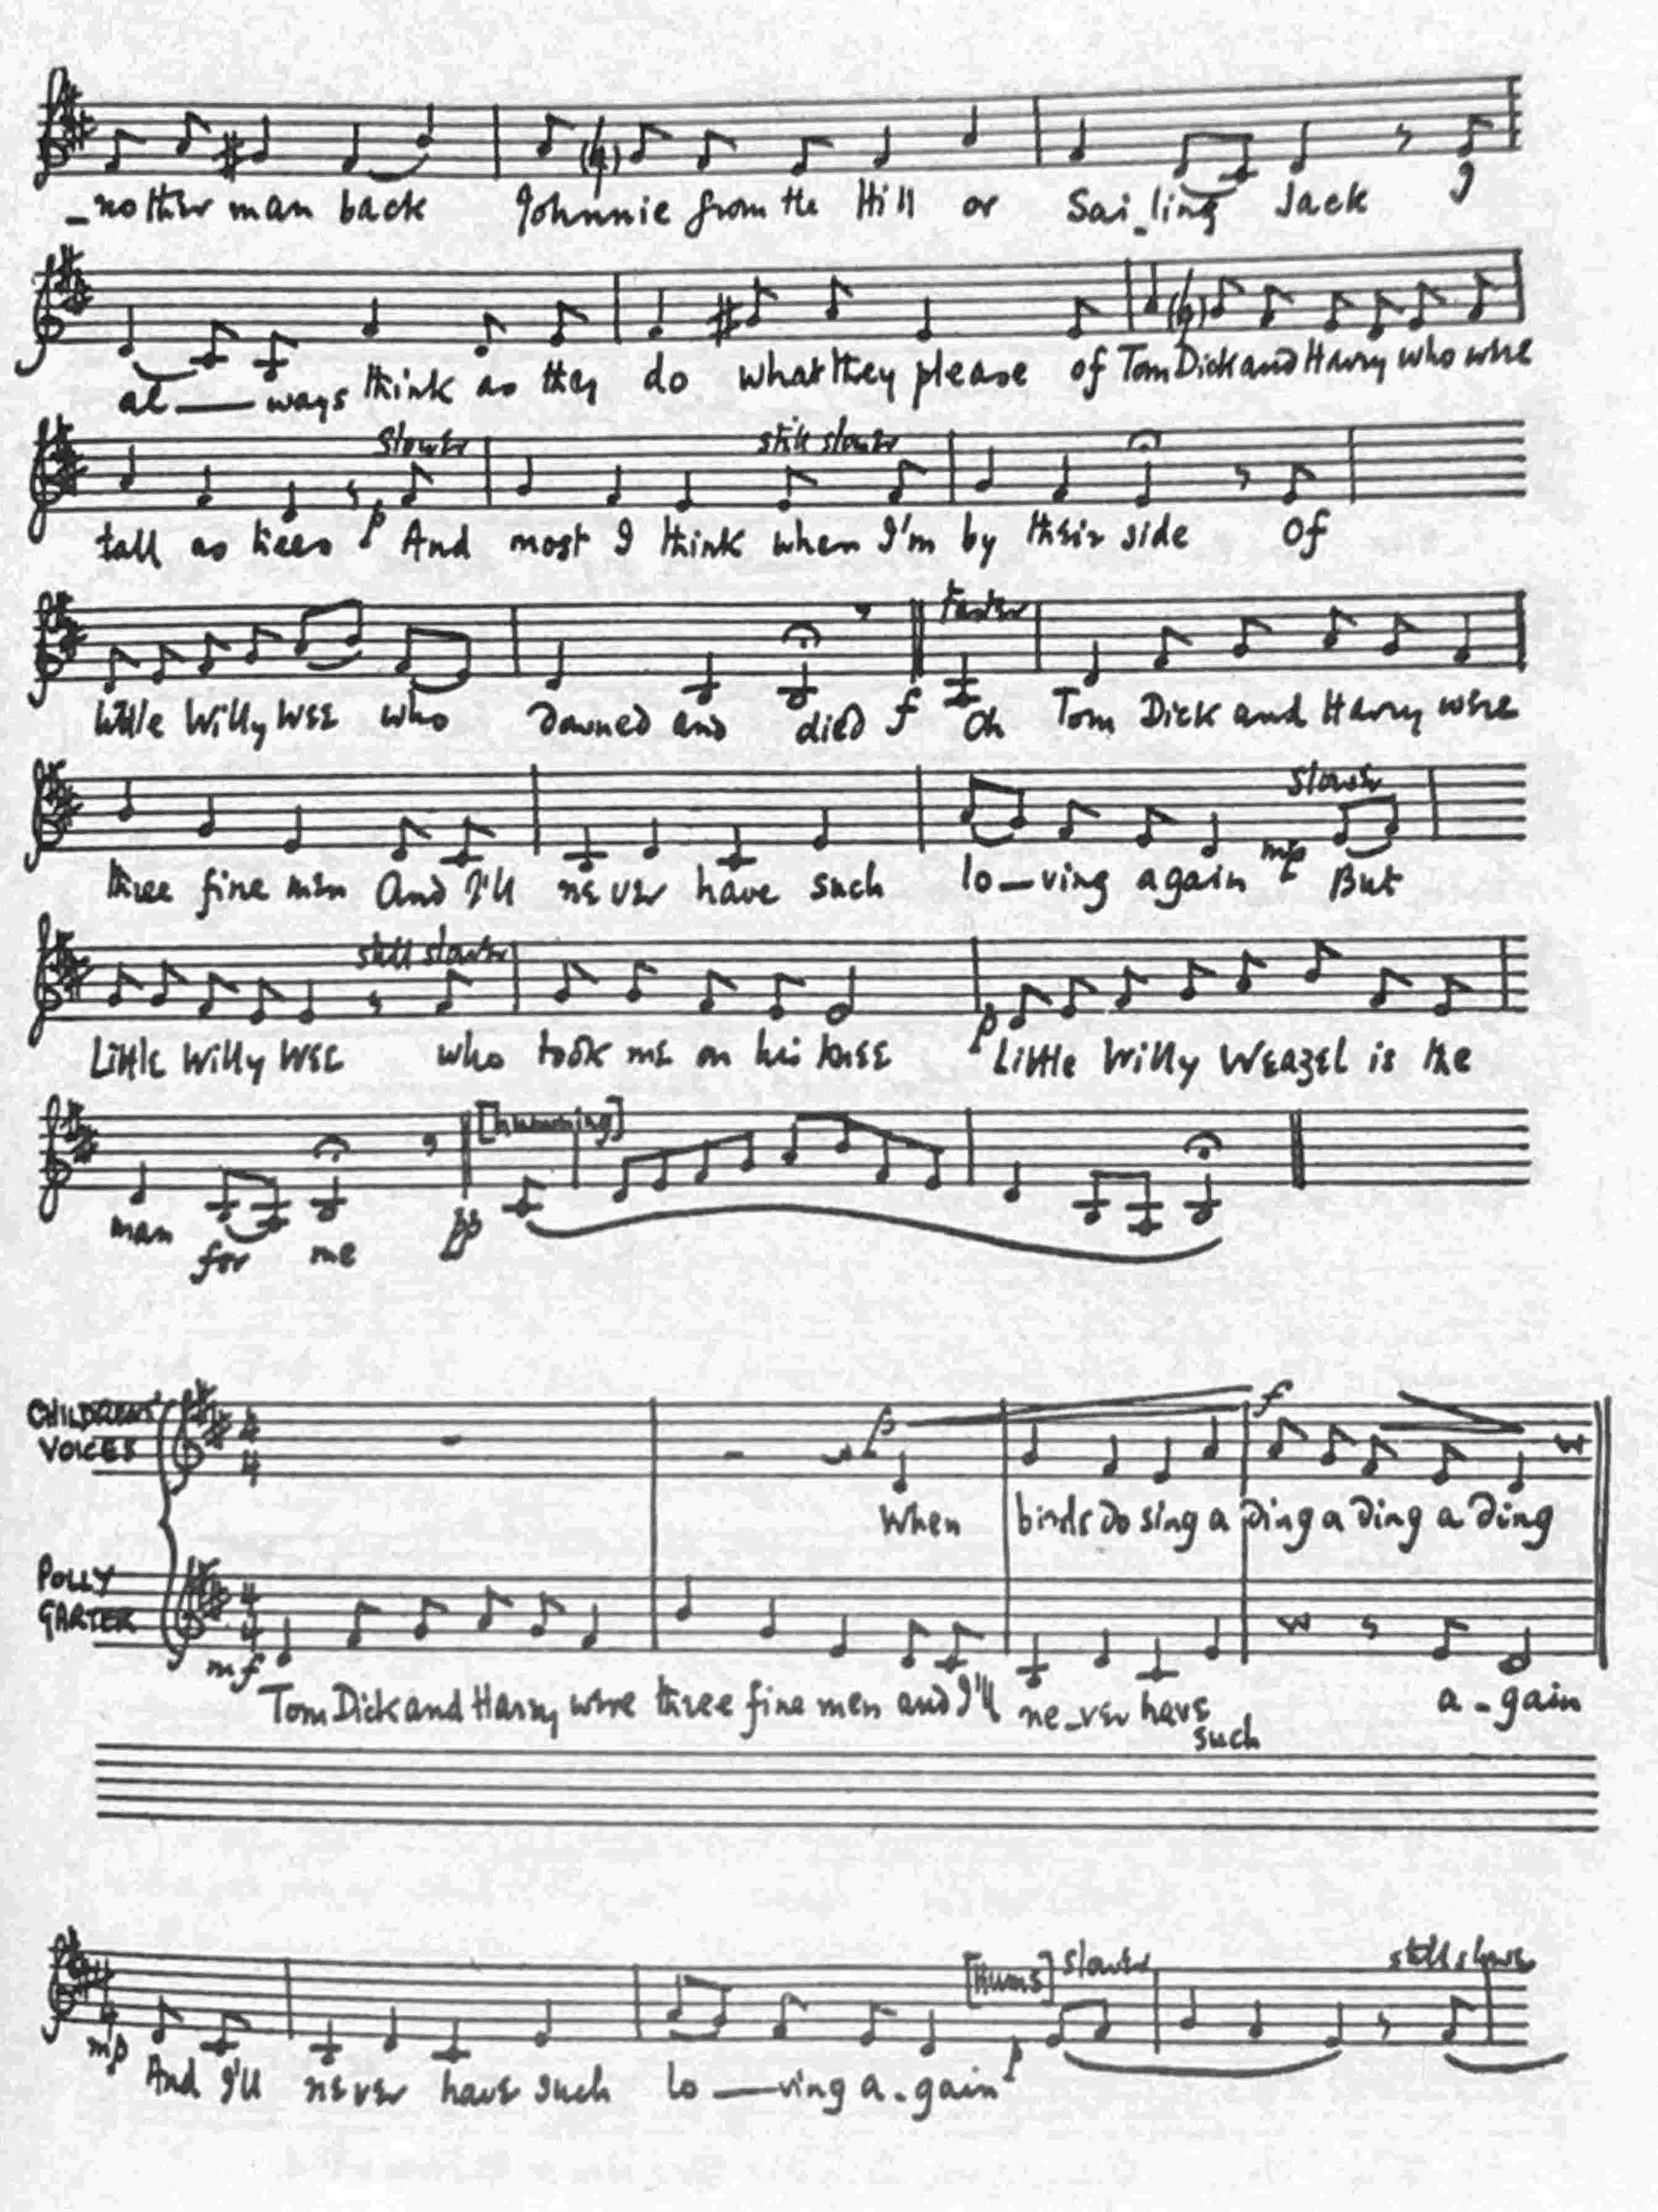 _nother man back Johnnie from the Hill or Sai_ling Jack I
al—ways think as they do what they please of Tom Dick and Harry who were
slower still slower
tall as trees p And most I think when I'm by their side Of
faster
little Willy Wee who downed and died f Oh Tom Dick and Harry were
slower
three fine men And I'll never have such lo—ving again mp But
still slower
Little Willy Wee who took me on his knee p Little Willy Weazel is the
[humming]
man for me pp
CHILDRENS' VOICES 4/4 p f
When birds do sing a ding a ding a ding
POLLY GARTER 4/4 mf
Tom Dick and Harry were three fine men and I'll ne_ver have such a-gain
[Hums] slower still slower
mp And I'll never have such lo—ving a-gain p